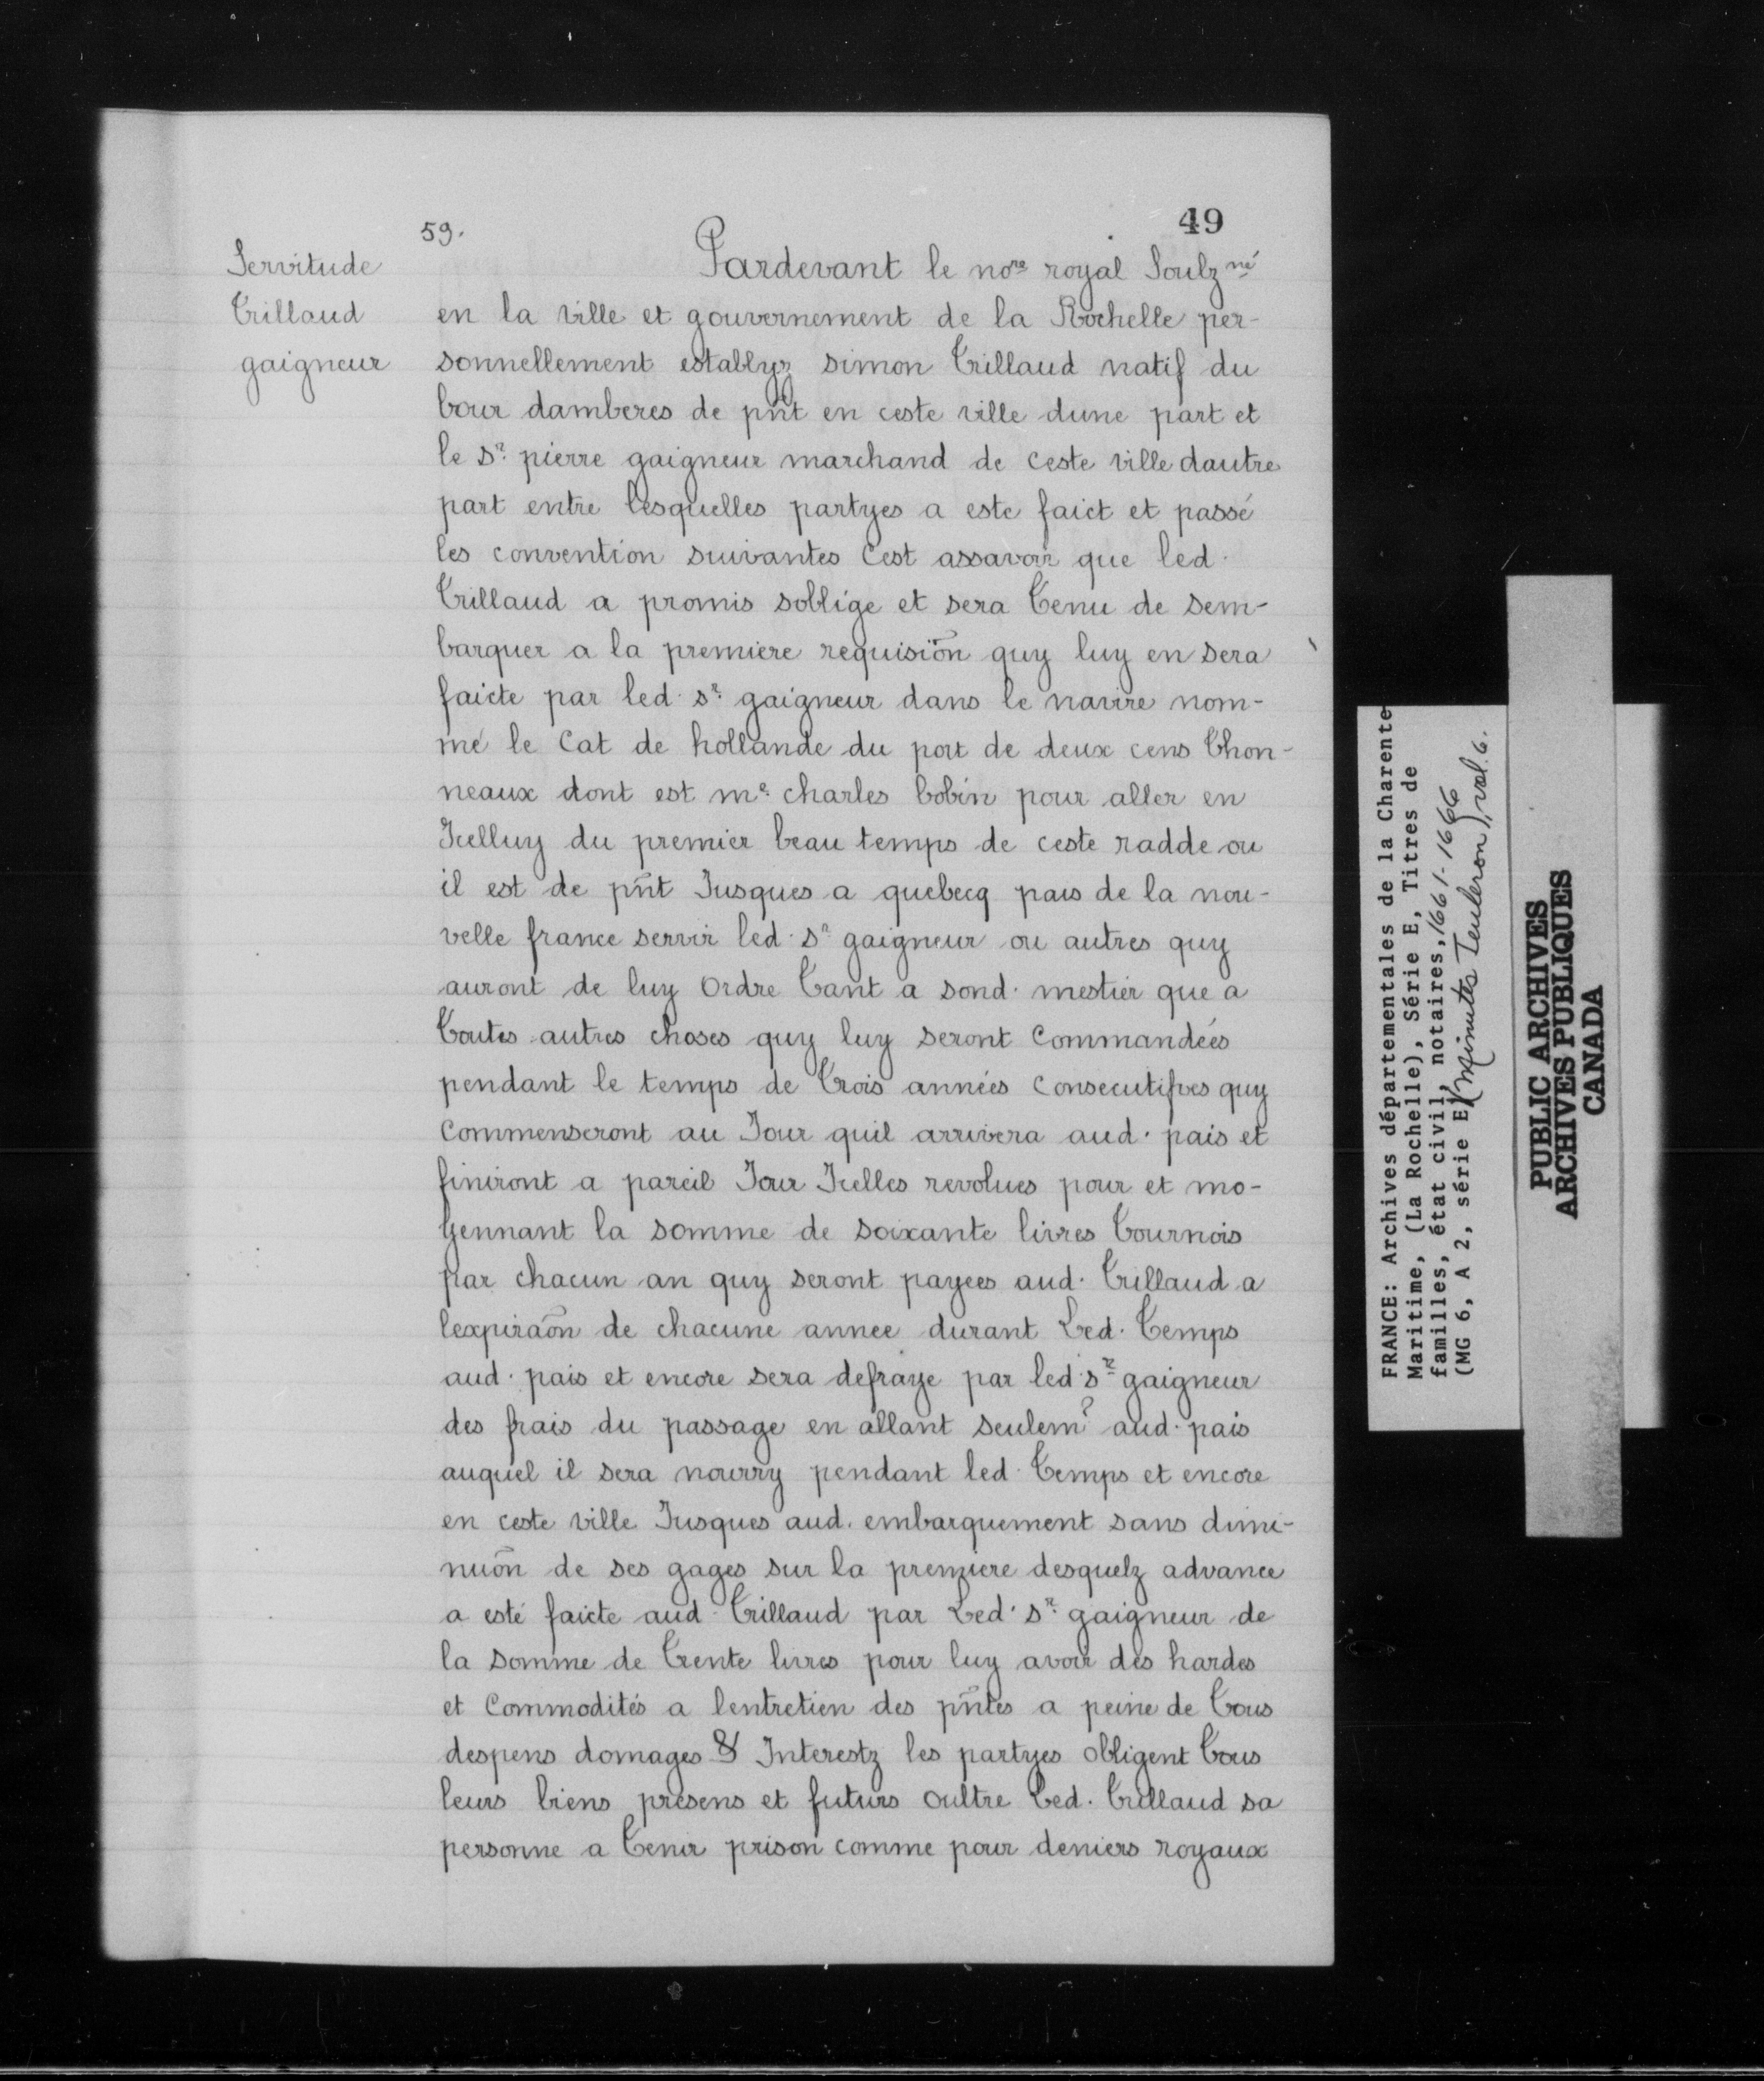 49
59.
Servitude
Trillaud
gaigneur
Pardevant le nore royal Soulzné
en la ville et gouvernement de la Rochelle per-
sonnellement establyz simon Trillaud natif du
bour damberes de pñt en ceste ville dune part et
le sr. pierre gaigneur marchand de ceste ville dautre
part entre lesquelles partyes a este faict et passé
les convention suivantes Cest assavoir que led.
Trillaud a promis soblige et sera Tenu de sem-
barquer a la premiere requisiõn quy luy en sera
faicte par led. sr. gaigneur dans le navire nom-
mé le Cat de hollande du port de deux cens Thon-
neaux dont est me. charles bobin pour aller en
Icelluy du premier beau temps de ceste radde ou
il est de pñt Jusques a quebecq pais de la nou-
velle france servir led. sr gaigneur ou autres quy
auront de luy Ordre Tant a sond. mestier que a
Toutes autres choses quy luy seront Commandées
pendant le temps de Trois années Consecutifves quy
Commenseront au Jour quil arrivera aud. pais et
finiront a pareil Jour Icelles revolues pour et mo-
yennant la somme de soixante livres Tournois
par chacun an quy seront payees aud. Trillaud a
lexpiraõn de chacune annee durant Led. Temps
aud. pais et encore sera defraye par led. sr gaigneur
des frais du passage en allant seulemt aud. pais
auquel il sera nourry pendant led. Temps et encore
en ceste ville Jusques aud. embarquement sans dimi-
nuõn de ses gages sur la premiere desquelz advance
a esté faicte aud. Trillaud par Led. sr. gaigneur de
la somme de Trente livres pour luy avoir des hardes
et Commodités a lentretien des pñtes a peine de Tous
despens domages & Interestz les partyes Obligent Tous
leurs biens présens et futurs Oultre Led. Trillaud sa
personne a Tenir prison comme pour deniers royaux
FRANCE: Archives départementales de la Charente-
Maritime, (La Rochelle), Série E, Titres de
familles, état civil, notaires, 1661-1666
(MG 6, A 2, série E) (Minutes Teuleron), vol. 6.
PUBLIC ARCHIVES
ARCHIVES PUBLIQUES
CANADA